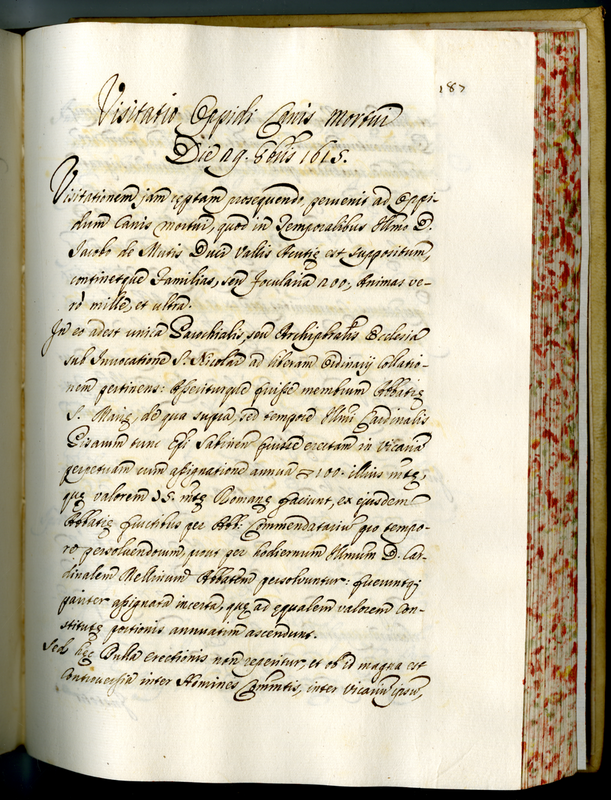 187
Visitatio Oppidi Canis mortui
Die 29. 8bris 1615.
Visitationem jam ceptam prosequendo pervenit ad Oppi-
dum Canis mortui, quod in Temporalibus Illmo D.
Jacobo de Mutis Duci Vallis Mutię est suppositum,
continetque Familias, seu focularia 200., Animas ve-
rò mille, et ultra.
In eo adest unica Parochialis, seu Archipralis Ecclesia
sub Invocatione S. Nicolai ad liberam Ordinarij Collatio-
nem pertinens: Asseriturque fuisse membrum Abbatię
S. Marię, de qua supra, sed tempore Illmi Cardinalis
tunc Epi Sabinen fuisse erectam in Vicariã
perpetuam cum assignatione annua 100. illius mtę,
quę valorem 35. mtę Romanę faciunt, ex ejusdem
Abbatię fructibus per Abb: Commendatariũ pro tempo-
re, persolvendorum, prout per hodiernum Illmum D. Car-
dinalem Abbatem persolvuntur: fueruntq;
pariter assignata incerta, quę ad ęqualem valorem con-
stitutę portionis annuatim ascendunt.
Sed hęc Bulla erectionis non reperitur, et ob id magna est
controversia inter Homines Commtis, inter Vicariũ ipsũ,